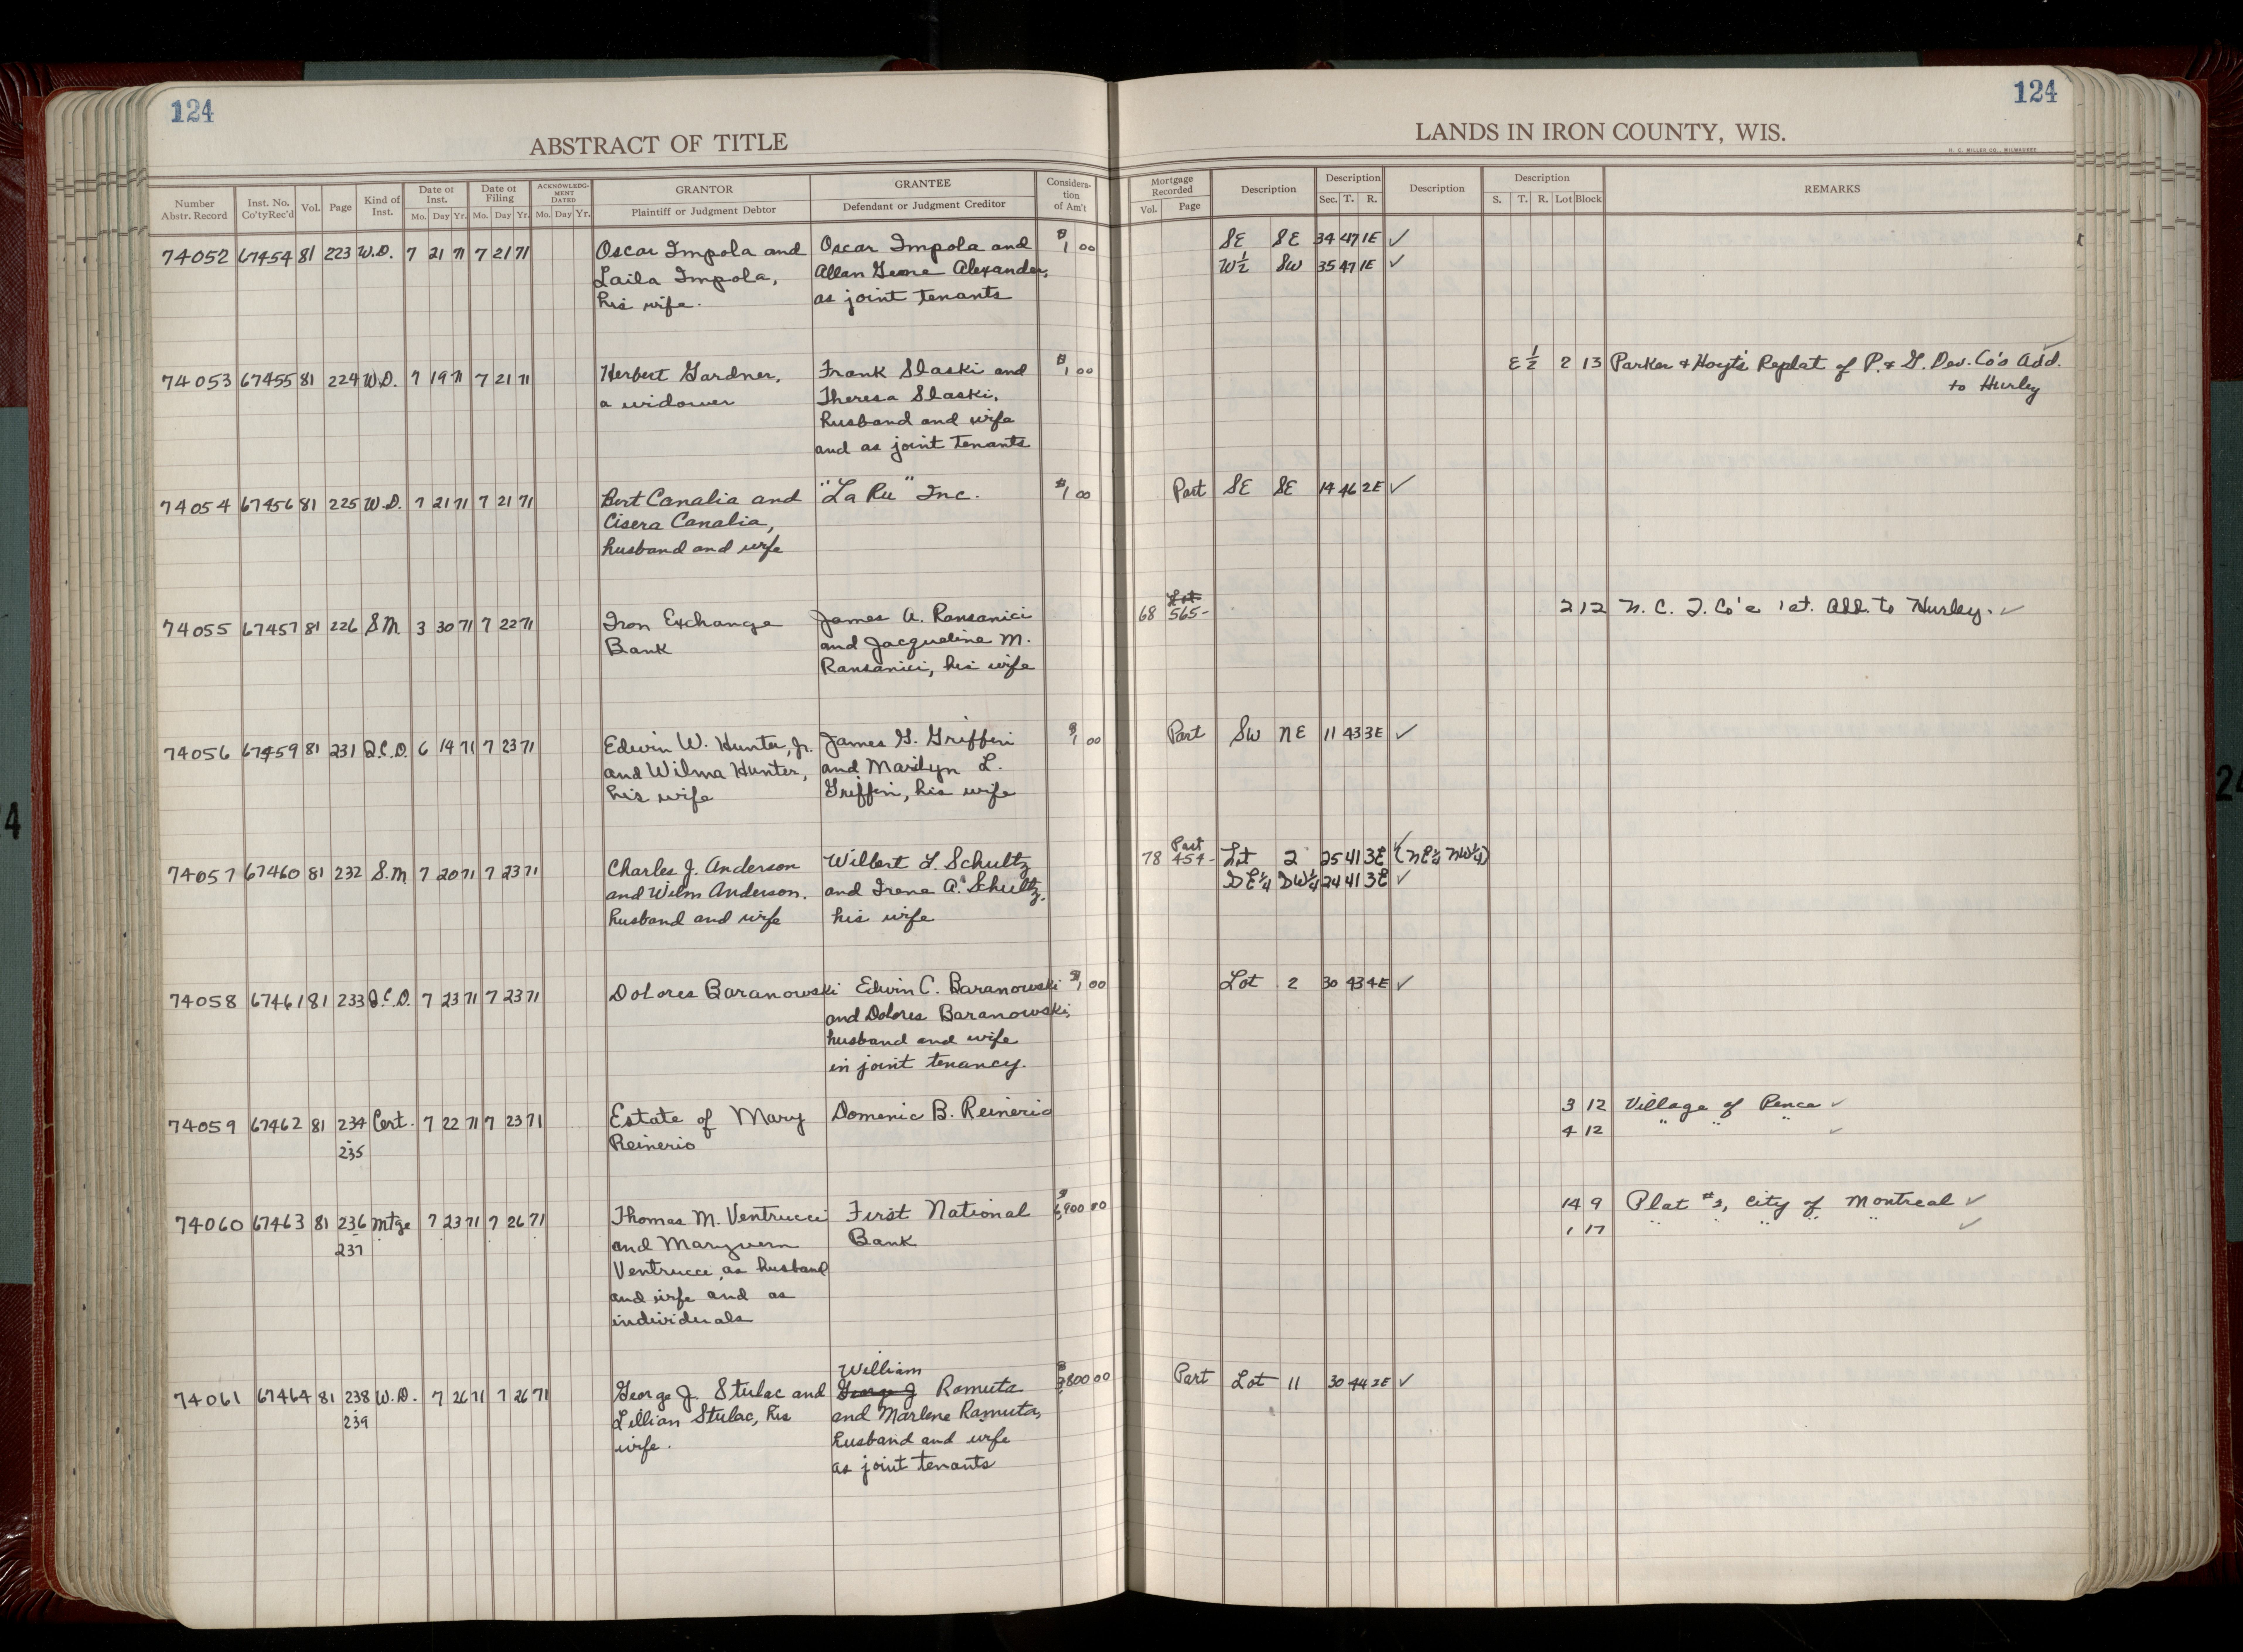 124
124
ABSTRACT OF TITLE
LANDS IN IRON COUNTY, WIS.
H. C. MILLER CO., MILWAUKEE
Number Abstr. Record | Inst. No. Co'ty Rec'd | Vol. | Page | Kind of Inst. | Date of Inst. Mo. Day Yr. | Date of Filing Mo. Day Yr. | ACKNOWLEDGMENT DATED Mo. Day Yr. | GRANTOR Plaintiff or Judgment Debtor | GRANTEE Defendant or Judgment Creditor | Consideration of Am't | Mortgage Recorded Vol. Page | Description | Description Sec. T. R. | Description | Description S. T. R. Lot Block | REMARKS
74052 67454 81 223 W.D. 7 21 71 7 21 71 Oscar Impola and Oscar Impola and $1 00 SE SE 34 47 1E ✓
Laila Impola, Allan Alexander, W½ SW 35 47 1E ✓
his wife. as joint tenants
74053 67455 81 224 W.D. 7 19 71 7 21 71 Herbert Gardner, Frank Slaski and $1 00 E½ 2 13 Parker & Hoyt's Replat of P. & G. Dev. Co's Add.
a widower Theresa Slaski, to Hurley
husband and wife
and as joint tenants
74054 67456 81 225 W.D. 7 21 71 7 21 71 Bert Canalia and "La Ru" Inc. $1 00 Part SE SE 14 46 2E ✓
Cisera Canalia,
husband and wife
74055 67457 81 226 S.M. 3 30 71 7 22 71 Iron Exchange James A. Ransanici 68 565- 2 12 N. C. I. Co's 1st. Add. to Hurley. ✓
Bank and Jacqueline M.
Ransanici, his wife
74056 67459 81 231 Q.C.D. 6 14 71 7 23 71 Edwin W. Hunter, Jr. James G. Griffin $1 00 Part SW NE 11 43 3E ✓
and Wilma Hunter, and Marilyn L.
his wife Griffin, his wife
74057 67460 81 232 S.M 7 20 71 7 23 71 Charles J. Anderson Wilbert L. Schultz 78 Part 454- Lot 2 25 41 3E ✓ (NE¼ NW¼)
and Wilm Anderson. and Irene A. Schultz, SE¼ SW¼ 24 41 3E ✓
husband and wife his wife
74058 67461 81 233 Q.C.D. 7 23 71 7 23 71 Dolores Baranowski Edwin C. Baranowski $1 00 Lot 2 30 43 4E ✓
and Dolores Baranowski,
husband and wife
in joint tenancy.
74059 67462 81 234 Cert. 7 22 71 7 23 71 Estate of Mary Domenic B. Reinerio 3 12 Village of Pence ✓
235 Reinerio 4 12 " " " ✓
74060 67463 81 236 Mtge 7 23 71 7 26 71 Thomas M. Ventrucci First National 6,900 00 14 9 Plat #2, City of Montreal ✓
237 and Maryvern Bank 1 17 " " " " ✓
Ventrucci, as husband
and wife and as
individuals
William
74061 67464 81 238 W.D. 7 26 71 7 26 71 George J. Stulac and George J Ramuta $3800 00 Part Lot 11 30 44 2E ✓
239 Lillian Stulac, his and Marlene Ramuta,
wife. husband and wife
as joint tenants